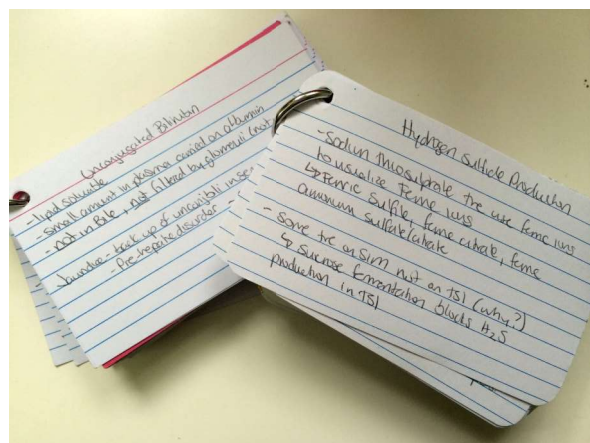 Unconjugated Bilirubin
- lipid soluble
- small amount in plasma carried on albumin
- not in Bile, not filtered by glomeruli (not
Jaundice - back up of unconj bili in se
- Pre-hepatic disorder
Hydrogen Sulfide Production
- Sodium thiosulphate tre use ferric ions
to visualize Ferric ions
↳ Ferric Sulfate, ferric citrate, ferric
ammonium sulfate/citrate
- Some tre on SIM not on TSI (why?)
↳ Sucrose fermentation blocks H₂S
production in TSI